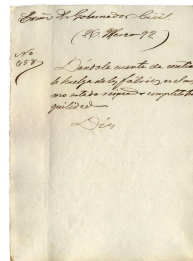 Exmo Sr Gobernador Civil
(26 Marzo 92)
No
658
Dándole cuenta de continuar
la huelga de los fábricas en el mis
mo estado reinando completa tran
quilidad
Dios